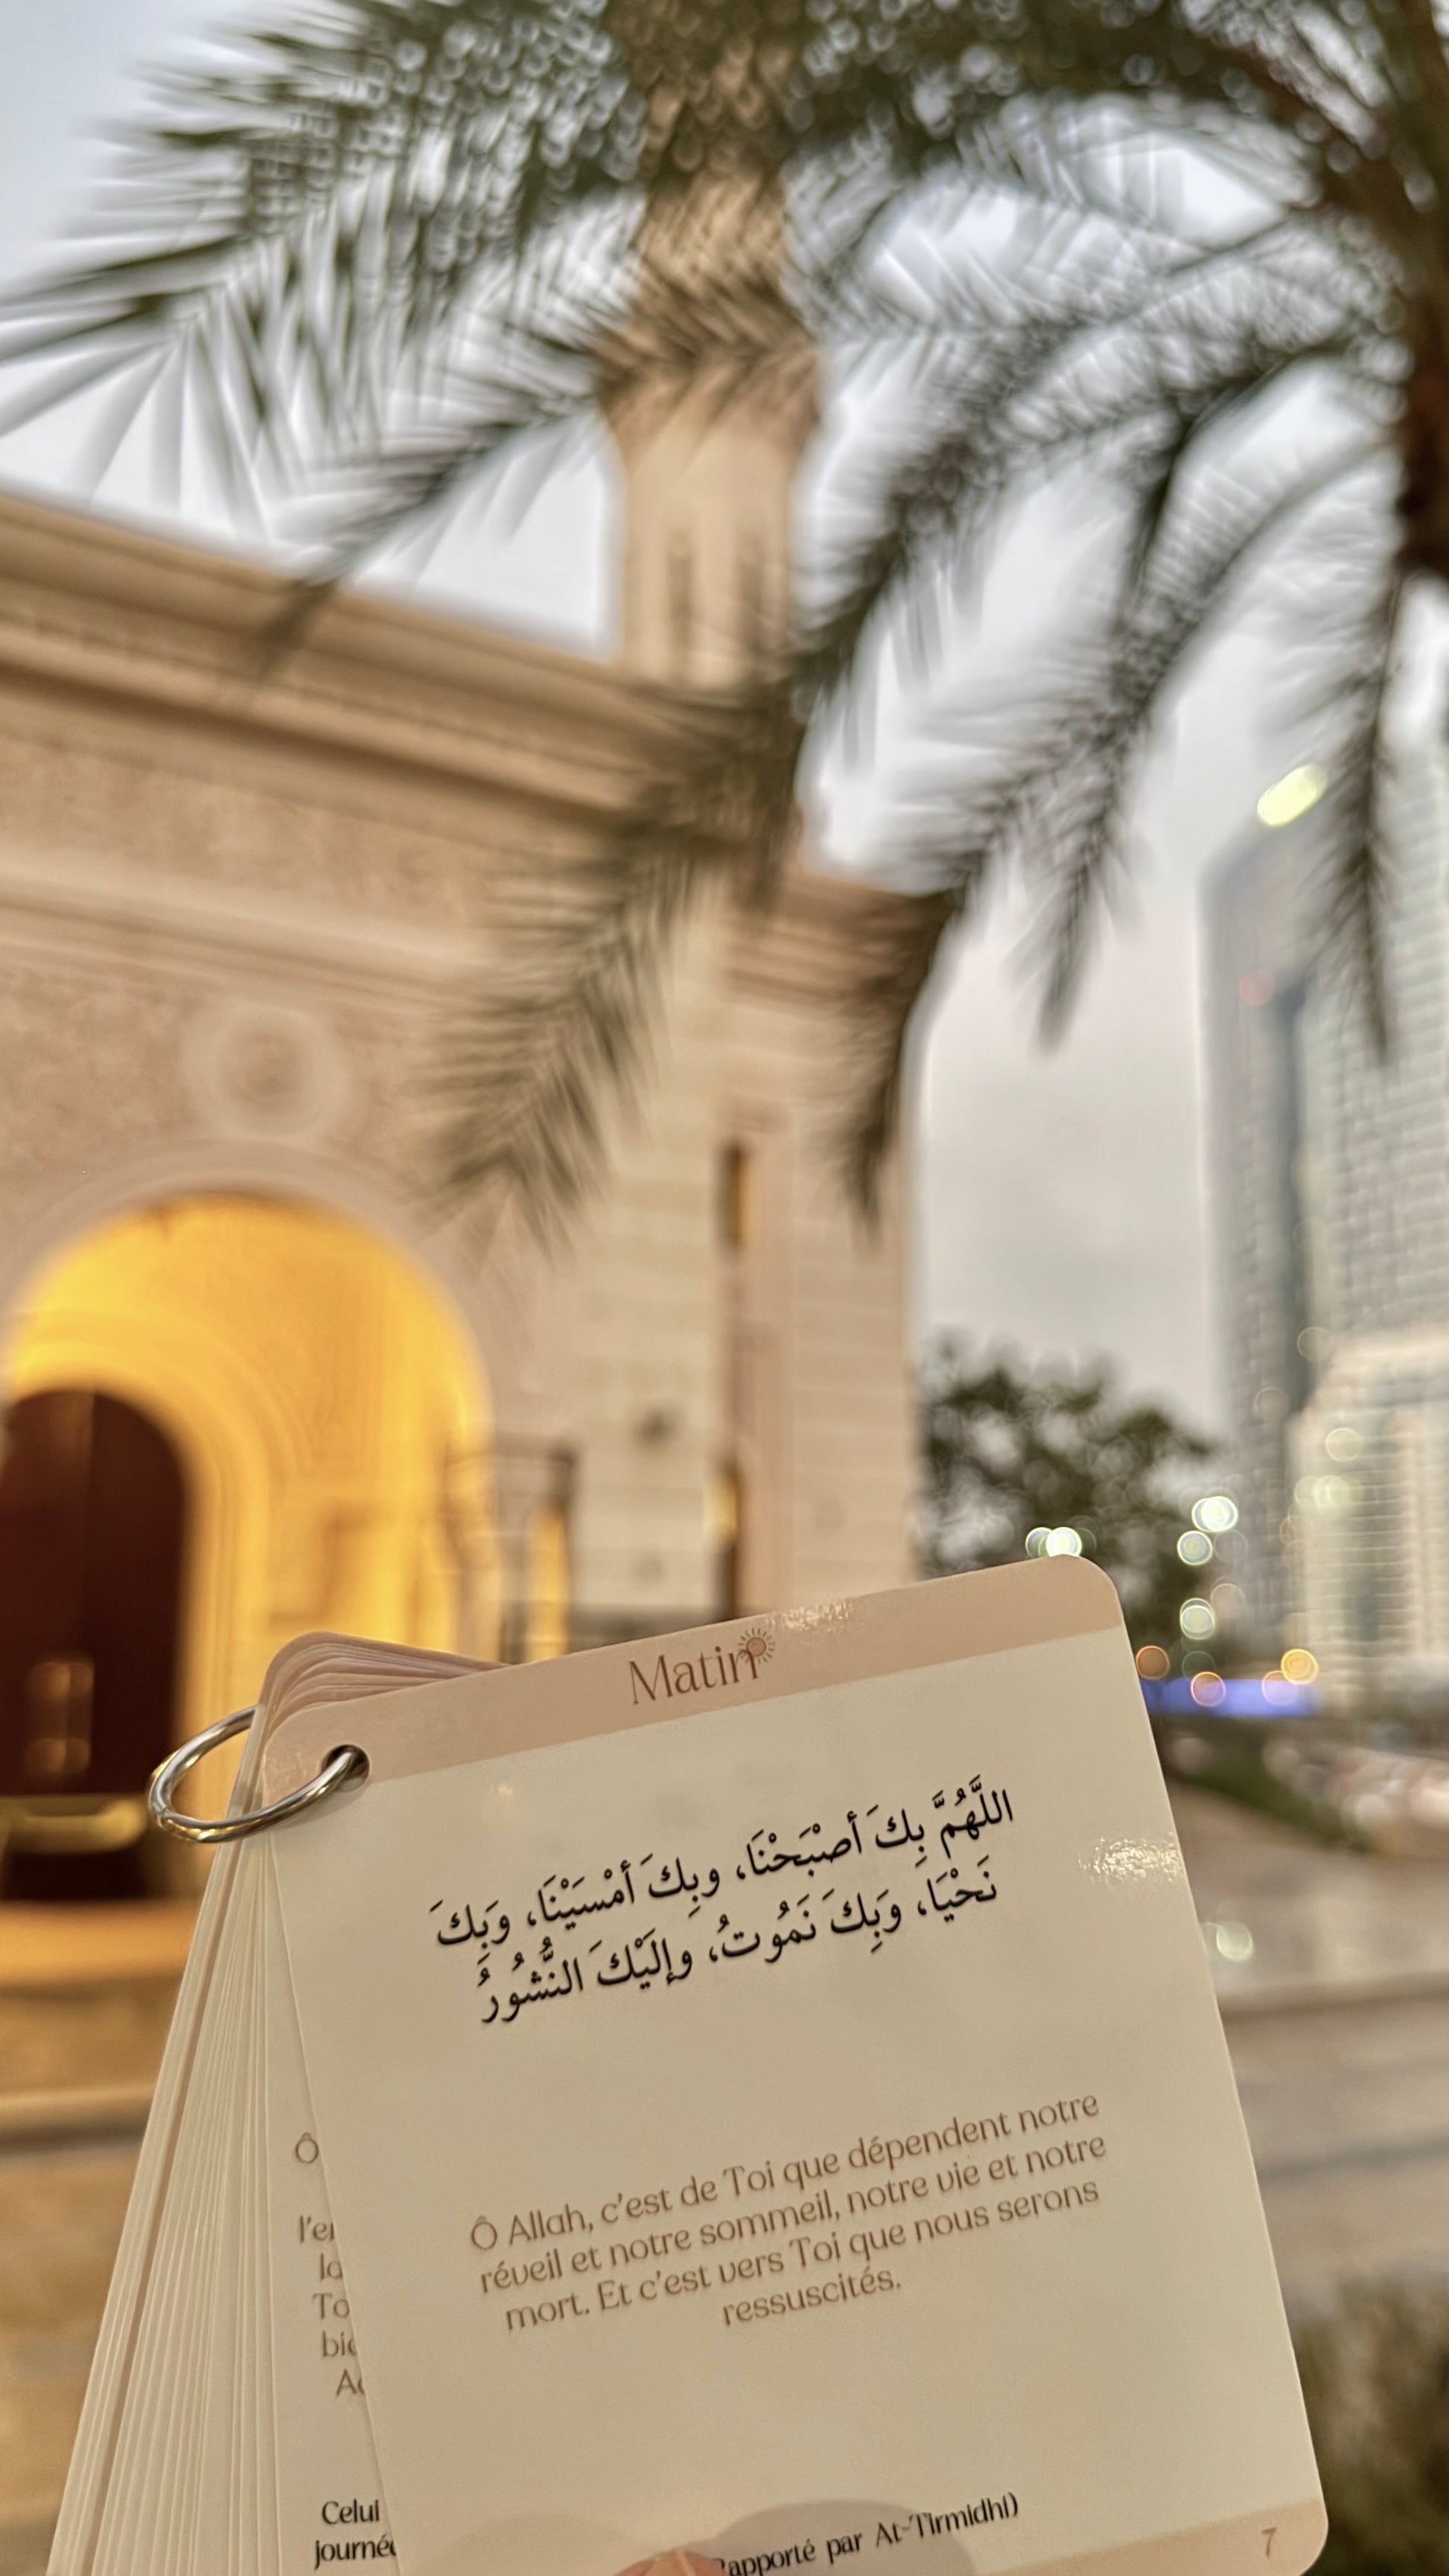 Matin
اللَّهُمَّ بِكَ أَصْبَحْنَا، وبِكَ أَمْسَيْنَا، وَبِكَ
نَحْيَا، وَبِكَ نَمُوتُ، وإلَيْكَ النُّشُورُ
Ô Allah, c'est de Toi que dépendent notre
réveil et notre sommeil, notre vie et notre
mort. Et c'est vers Toi que nous serons
ressuscités.
Rapporté par At-Tirmidhi)
7
Ô
l'
To
Celui